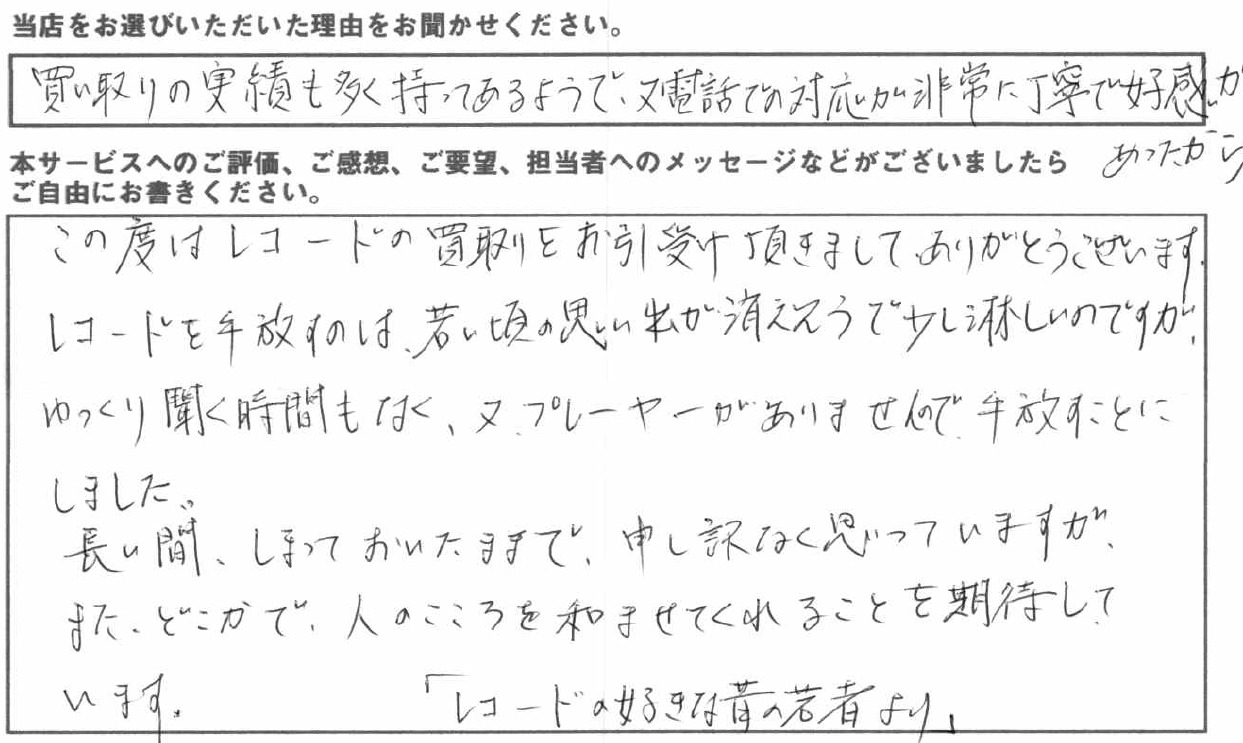 当店をお選びいただいた理由をお聞かせください。
買い取りの実績も多く持ってあるようで、又電話での対応が非常に丁寧で好感が
あったから
本サービスへのご評価、ご感想、ご要望、担当者へのメッセージなどがございましたら
ご自由にお書きください。
この度はレコードの買取りをお引受け頂きましてありがとうございます。
レコードを手放すのは、若い頃の思い出が消えそうで少し淋しいのですが、
ゆっくり聞く時間もなく、又、プレーヤーがありませんので、手放すことに
しました。
長い間、しまっておいたままで、申し訳なく思っていますが、
また、どこかで、人のこころを和ませてくれることを期待して
います。
「レコードの好きな昔の若者より」